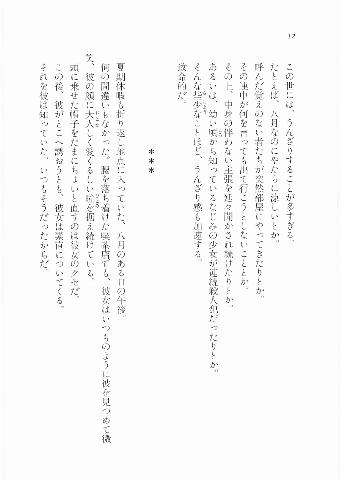 12
この世には、うんざりすることが多すぎる。
たとえば、八月なのにやたらに涼しいとか。
呼んだ覚えのない者たちが突然部屋にやってきたりとか。
その連中が何を言っても出て行こうとしないこととか。
その上、中身の伴わない主張を延々聞かされ続けたりとか。
あるいは、幼い頃から知っているなじみの少女が連続殺人犯だったりとか。
そんな些少なことほど、うんざり感も加速する。
致命的だ。
＊＊＊
夏期休暇も折り返し地点に入っていた、八月のある日の午後。
何の間違いもなかった。腰を落ち着けた喫茶店でも、彼女はいつものように彼を見つめて微
笑、彼の顔に大人しく愛くるしい瞳を据え続けている。
頭に乗せた帽子をたまにちょいと直すのは彼女のクセだ。
この後、彼がどこへ誘おうとも、彼女は素直についてくる。
それを彼は知っていた。いつもそうだったからだ。